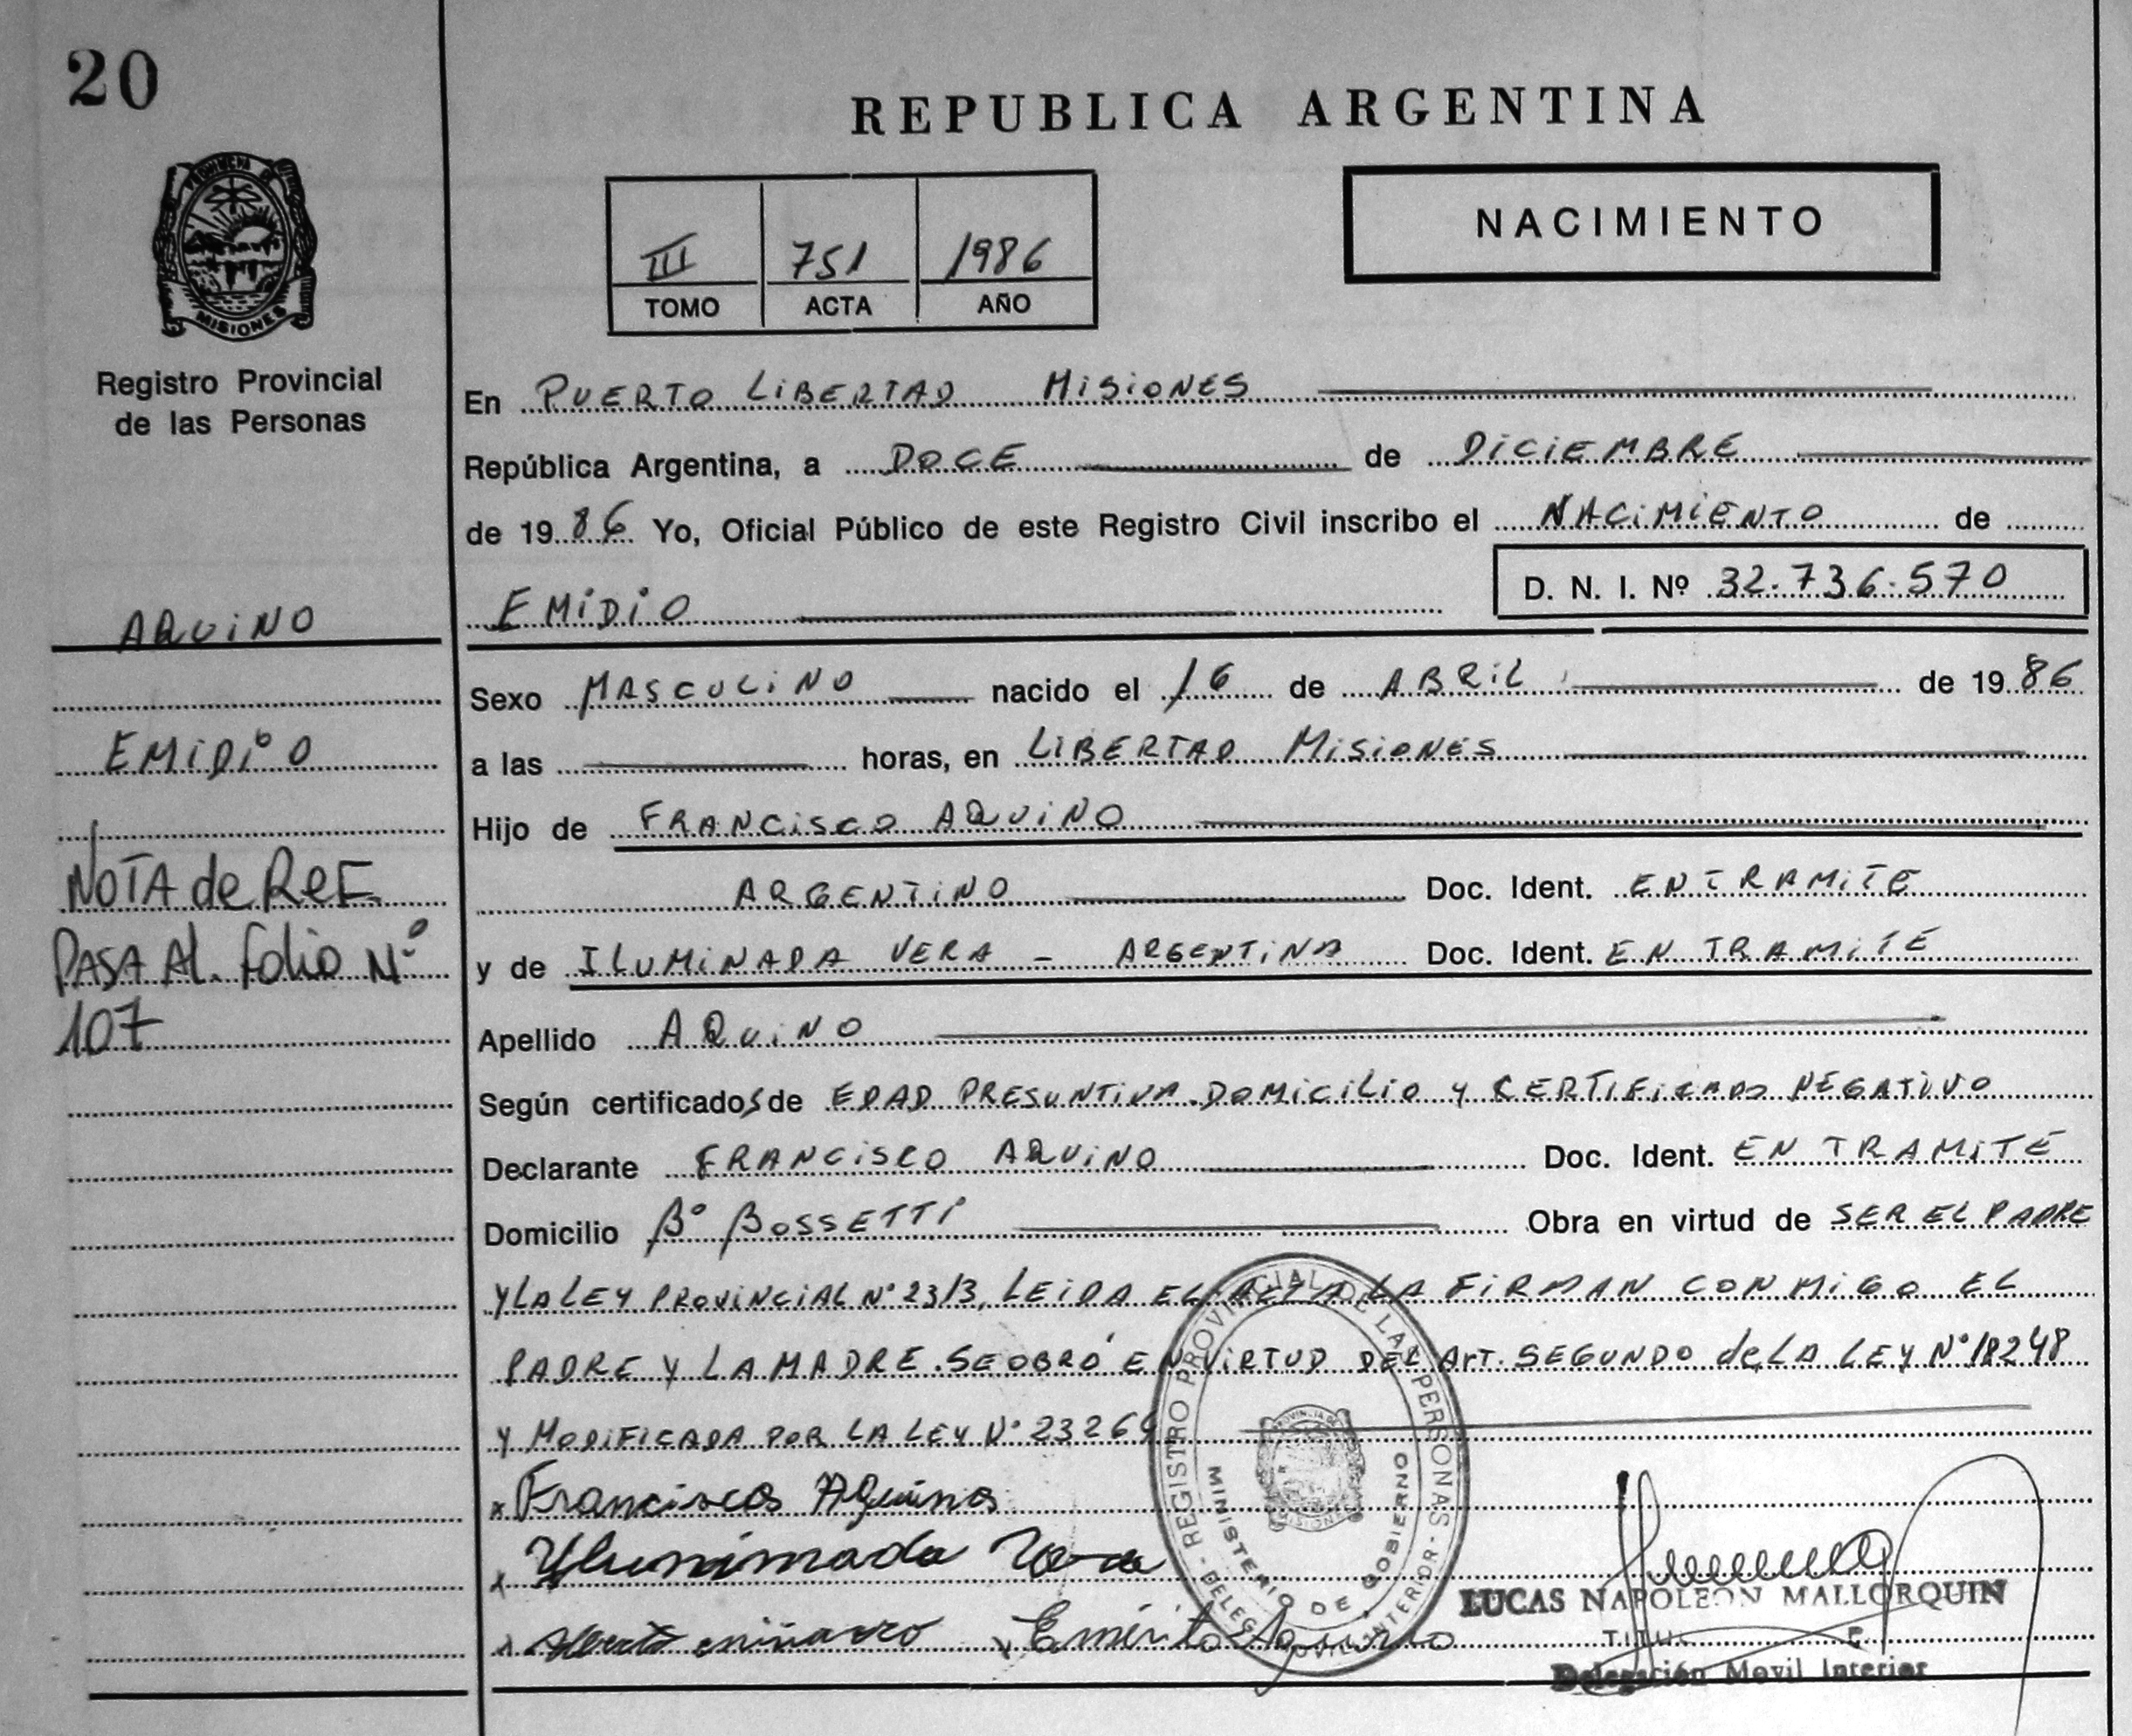 20
REPUBLICA ARGENTINA
NACIMIENTO
III 751 1986
TOMO ACTA AÑO
PROVINCIA DE MISIONES
Registro Provincial
de las Personas
En PUERTO LIBERTAD MISIONES
República Argentina, a DOCE de DICIEMBRE
de 1986 Yo, Oficial Público de este Registro Civil inscribo el NACIMIENTO de
EMIDIO D. N. I. Nº 32.736.570
AQUINO
Sexo MASCULINO nacido el 16 de ABRIL de 1986
EMIDIO
a las horas, en LIBERTAD MISIONES
Hijo de FRANCISCO AQUINO
NOTA de REF.
PASA AL. folio Nº
107
ARGENTINO Doc. Ident. EN TRAMITE
y de ILUMINADA VERA - ARGENTINA Doc. Ident. EN TRAMITE
Apellido AQUINO
Según certificado/s de EDAD PRESUNTIVA. DOMICILIO Y CERTIFICADO NEGATIVO
Declarante FRANCISCO AQUINO Doc. Ident. EN TRAMITE
Domicilio Bº BOSSETTI Obra en virtud de SER EL PADRE
Y LA LEY PROVINCIAL Nº 2313, LEIDA EL ACTA LA FIRMAN CONMIGO EL
PADRE Y LA MADRE. SE OBRÓ EN VIRTUD DEL ArT. SEGUNDO de LA LEY Nº 18248
Y MODIFICADA POR LA LEY Nº 23264
x Francisco Aquino
x Yluminada Vera
x
REGISTRO PROVINCIAL DE LAS PERSONAS - DELEG. MOVIL INTERIOR -
MINISTERIO DE GOBIERNO
LUCAS NAPOLEON MALLORQUIN
Delegación Movil Interior